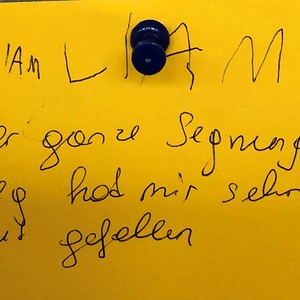 IAM LIAM
er ganze Segnungs
g hat mir sehr
gefallen